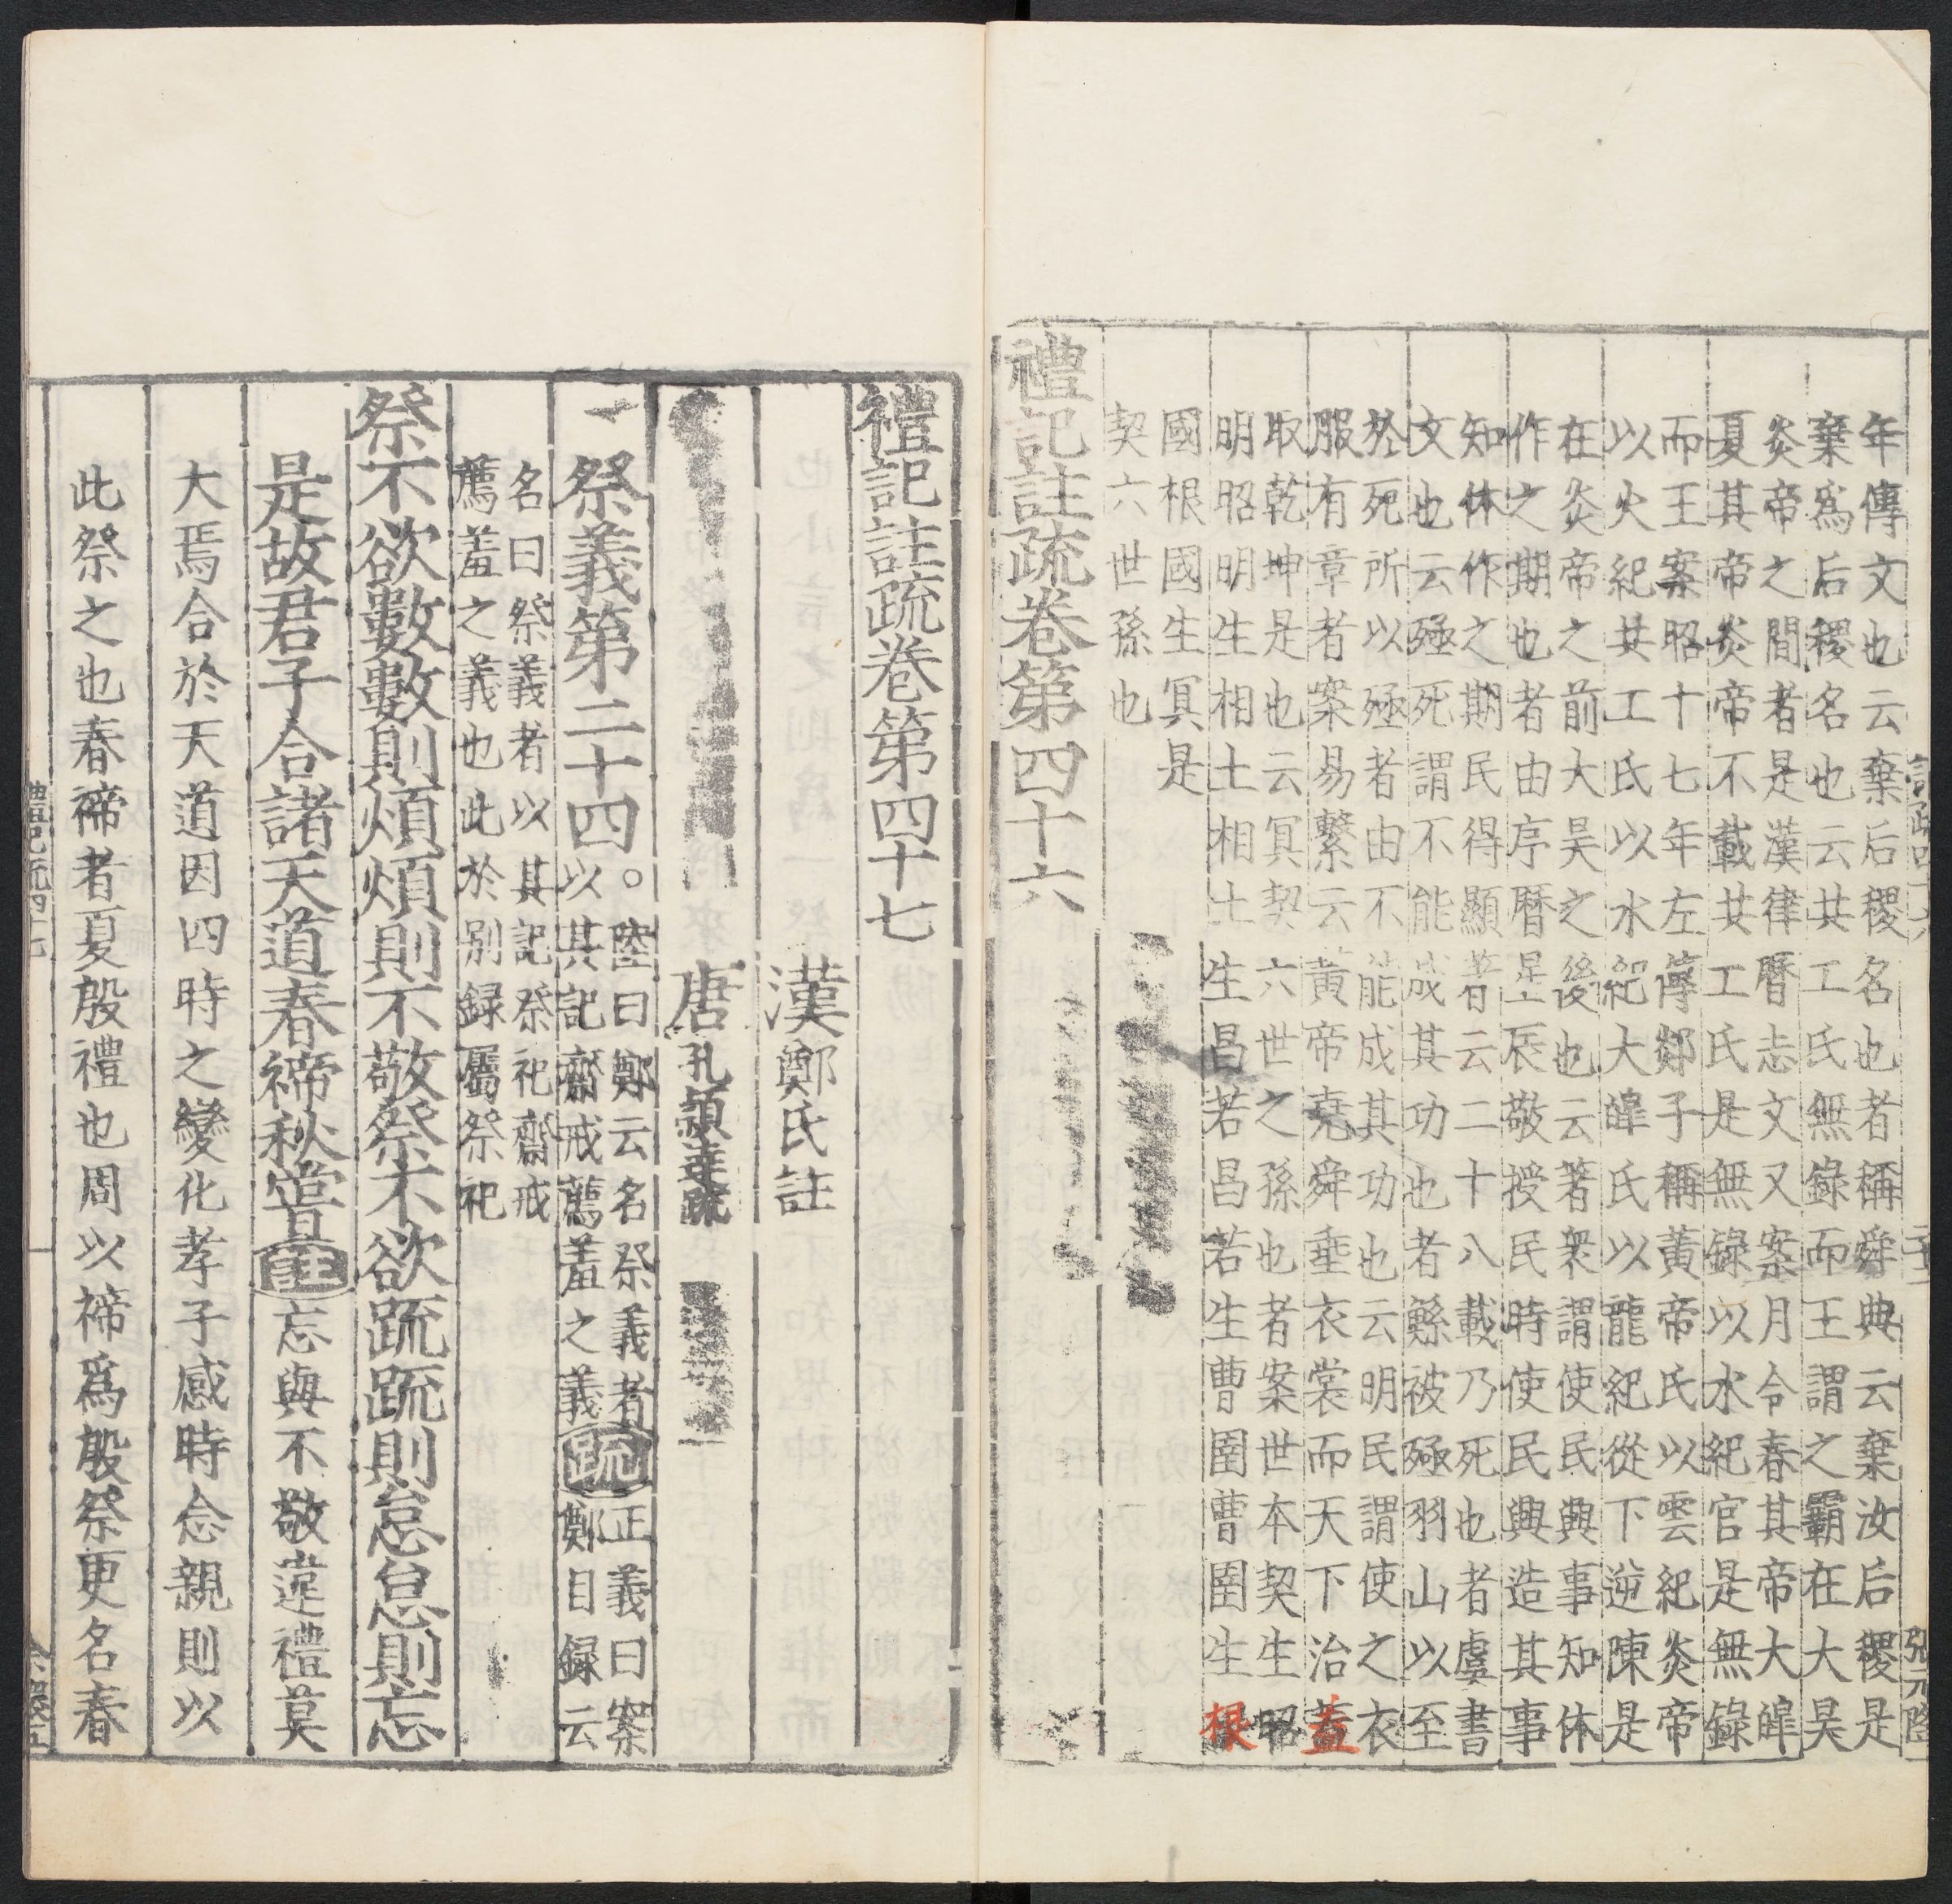 年傳文也云棄后稷名也者稱舜典云棄汝后稷是
棄爲后稷名也云共工氏無錄而王謂之霸在大昊
炎帝之間者是漢律曆志文又案月令春其帝大皥
夏其帝炎帝不載共工氏是無錄以水紀官是無錄
而王案昭十七年左傳郯子稱黃帝氏以雲紀炎帝
以火紀共工氏以水紀大皥氏以龍紀從下逆陳是
在炎帝之前大昊之後也云著衆謂使民興事知休
作之期也者由序曆星辰敬授民時使民興造其事
知休作之期民得顯著云二十八載乃死也者虞書
文也云殛死謂不能成其功也者鯀被殛羽山以至
於死所以殛者由不能成其功也云明民謂使之衣
服有章者案易繫云黃帝堯舜垂衣裳而天下治蓋
取乾坤是也云冥契六世之孫也者案世本契生昭
明昭明生相土相土生昌若昌若生曹圉曹圉生根
國根國生冥是
契六世孫也
禮記註疏卷第四十六
禮記註疏卷第四十七
漢鄭氏註
唐孔穎達疏
祭義第二十四○陸曰鄭云名祭義者
以其記齋戒薦羞之義
疏正義曰案
鄭目録云
名曰祭義者以其記祭祀齋戒
薦羞之義也此於别録屬祭祀
祭不欲數數則煩煩則不敬祭不欲疏疏則怠怠則忘
是故君子合諸天道春禘秋嘗註忘與不敬違禮莫
大焉合於天道因四時之變化孝子感時念親則以
此祭之也春禘者夏殷禮也周以禘爲殷祭更名春